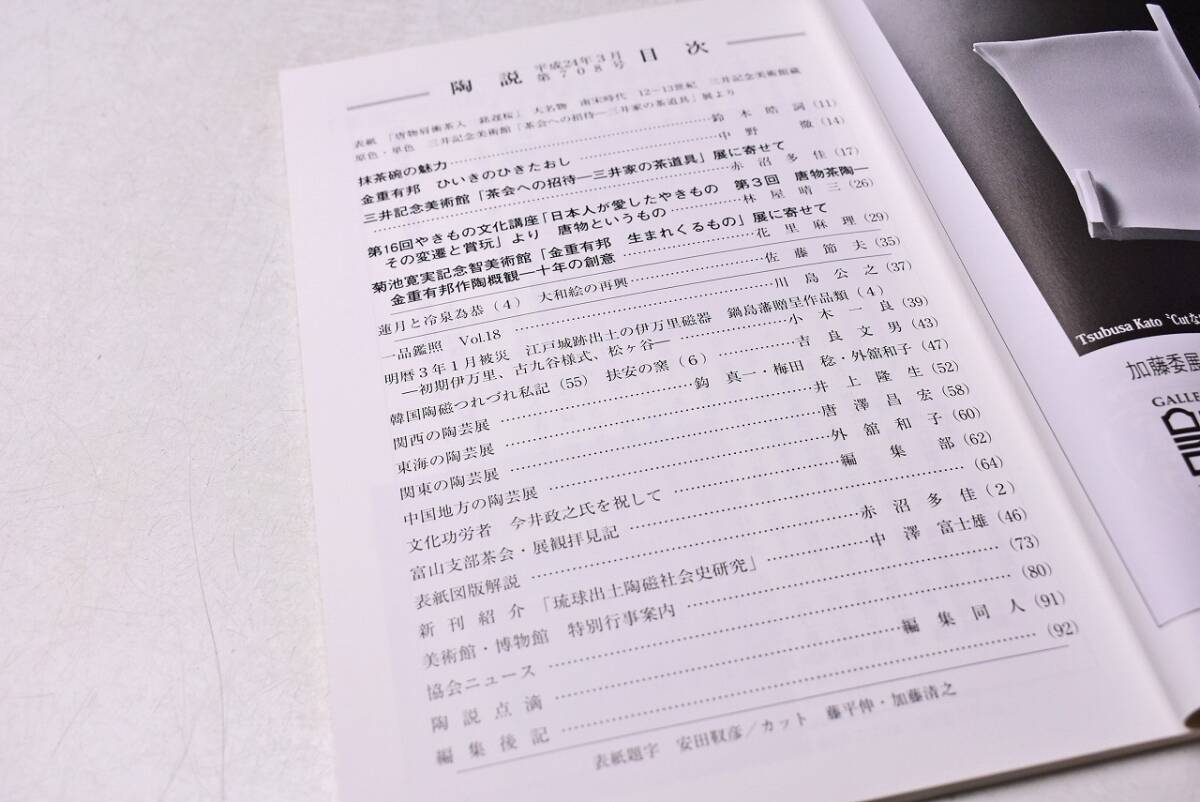 陶説 平成24年3月 第708号 目次
表紙 「唐物肩衝茶入 銘遅桜」 大名物 南宋時代 12〜13世紀 三井記念美術館蔵
原色・単色 三井記念美術館「茶会への招待―三井家の茶道具」展より
抹茶碗の魅力……鈴木皓詞(11)
金重有邦 ひいきのひきたおし……中野徹(14)
三井記念美術館「茶会への招待―三井家の茶道具」展に寄せて
……赤沼多佳(17)
第16回やきもの文化講座「日本人が愛したやきもの 第3回 唐物茶陶―
その変遷と賞玩」より 唐物というもの……林屋晴三(26)
菊池寛実記念智美術館「金重有邦 生まれくるもの」展に寄せて
金重有邦作陶概観―十年の創意……花里麻理(29)
蓮月と冷泉為恭(4) 大和絵の再興……佐藤節夫(35)
一品鑑照 Vol.18……川島公之(37)
明暦3年1月被災 江戸城跡出土の伊万里磁器 鍋島藩贈呈作品類(4)
―初期伊万里、古九谷様式、松ヶ谷―……小木一良(39)
韓国陶磁つれづれ私記(55) 扶安の窯(6)……吉良文男(43)
関西の陶芸展……鈎真一・梅田稔・外舘和子(47)
東海の陶芸展……井上隆生(52)
関東の陶芸展……唐澤昌宏(58)
中国地方の陶芸展……外舘和子(60)
文化功労者 今井政之氏を祝して……編集部(62)
富山支部茶会・展観拝見記……(64)
表紙図版解説……赤沼多佳(2)
新刊紹介「琉球出土陶磁社会史研究」……中澤富士雄(46)
美術館・博物館 特別行事案内……(73)
協会ニュース……(80)
陶説点滴……編集同人(91)
編集後記……(92)
表紙題字 安田靫彦/カット 藤平伸・加藤清之
Tsubusa Kato
加藤委展